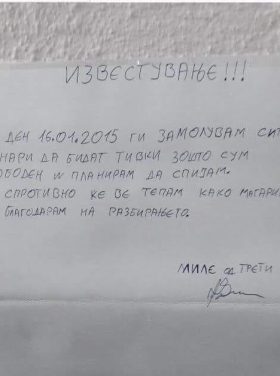 ИЗВЕСТУВАЊЕ!!!
ДЕН 16.01.2015 ГИ ЗАМОЛУВАМ СИТ
НАРИ ДА БИДАТ ТИВКИ ЗОШТО СУМ
ОБОДЕН И ПЛАНИРАМ ДА СПИЈАМ.
СПРОТИВНО ЌЕ ВЕ ТЕПАМ КАКО МАГАРИ
БЛАГОДАРАМ НА РАЗБИРАЊЕТО.
МИЛЕ ОД ТРЕТИ